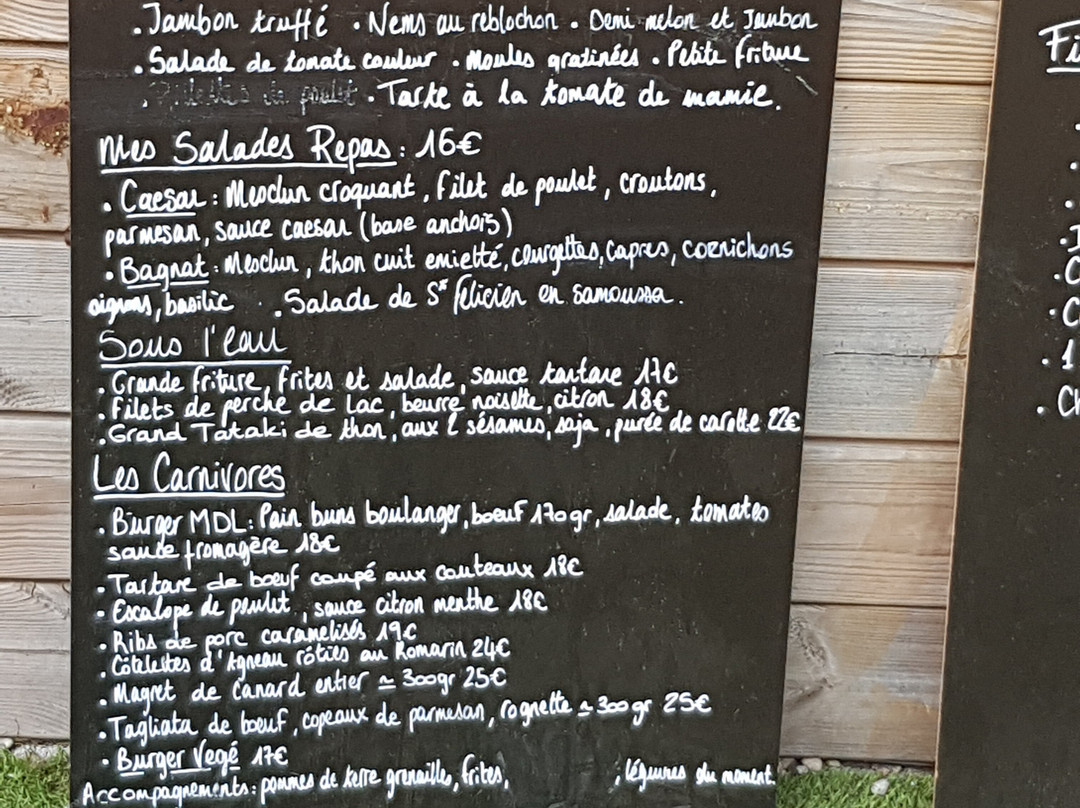 . Jambon truffé . Nems au reblochon . Demi melon et Jambon
. Salade de tomate couleur . Moules gratinées . Petite friture
. de poulet . Tarte à la tomate de mamie.
Mes Salades Repas : 16€
. Caesar : Mesclun croquant, filet de poulet, croutons,
parmesan, sauce caesar (base anchois)
. Bagnat : Mesclun, thon cuit emietté, courgettes, capres, cornichons
oignons, basilic . Salade de St félicien en samoussa.
Sous l'eau
. Grande friture, frites et salade, sauce tartare 17€
. Filets de perche de lac, beurre noisette, citron 18€
. Grand Tataki de thon, aux 2 sésames, soja, purée de carotte 22€
Les Carnivores
. Burger MDL : Pain buns boulanger, boeuf 170gr, salade, tomates
sauce fromagère 18€
. Tartare de boeuf coupé aux couteaux 18€
. Escalope de poulet, sauce citron menthe 18€
. Ribs de porc caramelisés 19€
. Côtelettes d'Agneau rôties au Romarin 24€
. Magret de Canard entier ≃ 300gr 25€
. Tagliata de boeuf, copeaux de parmesan, roquette ≃ 300gr 25€
. Burger Vegé 17€
Accompagnements : pommes de terre grenaille, frites, , légumes du moment.
Fi
I
C
C
. 1
. Ch